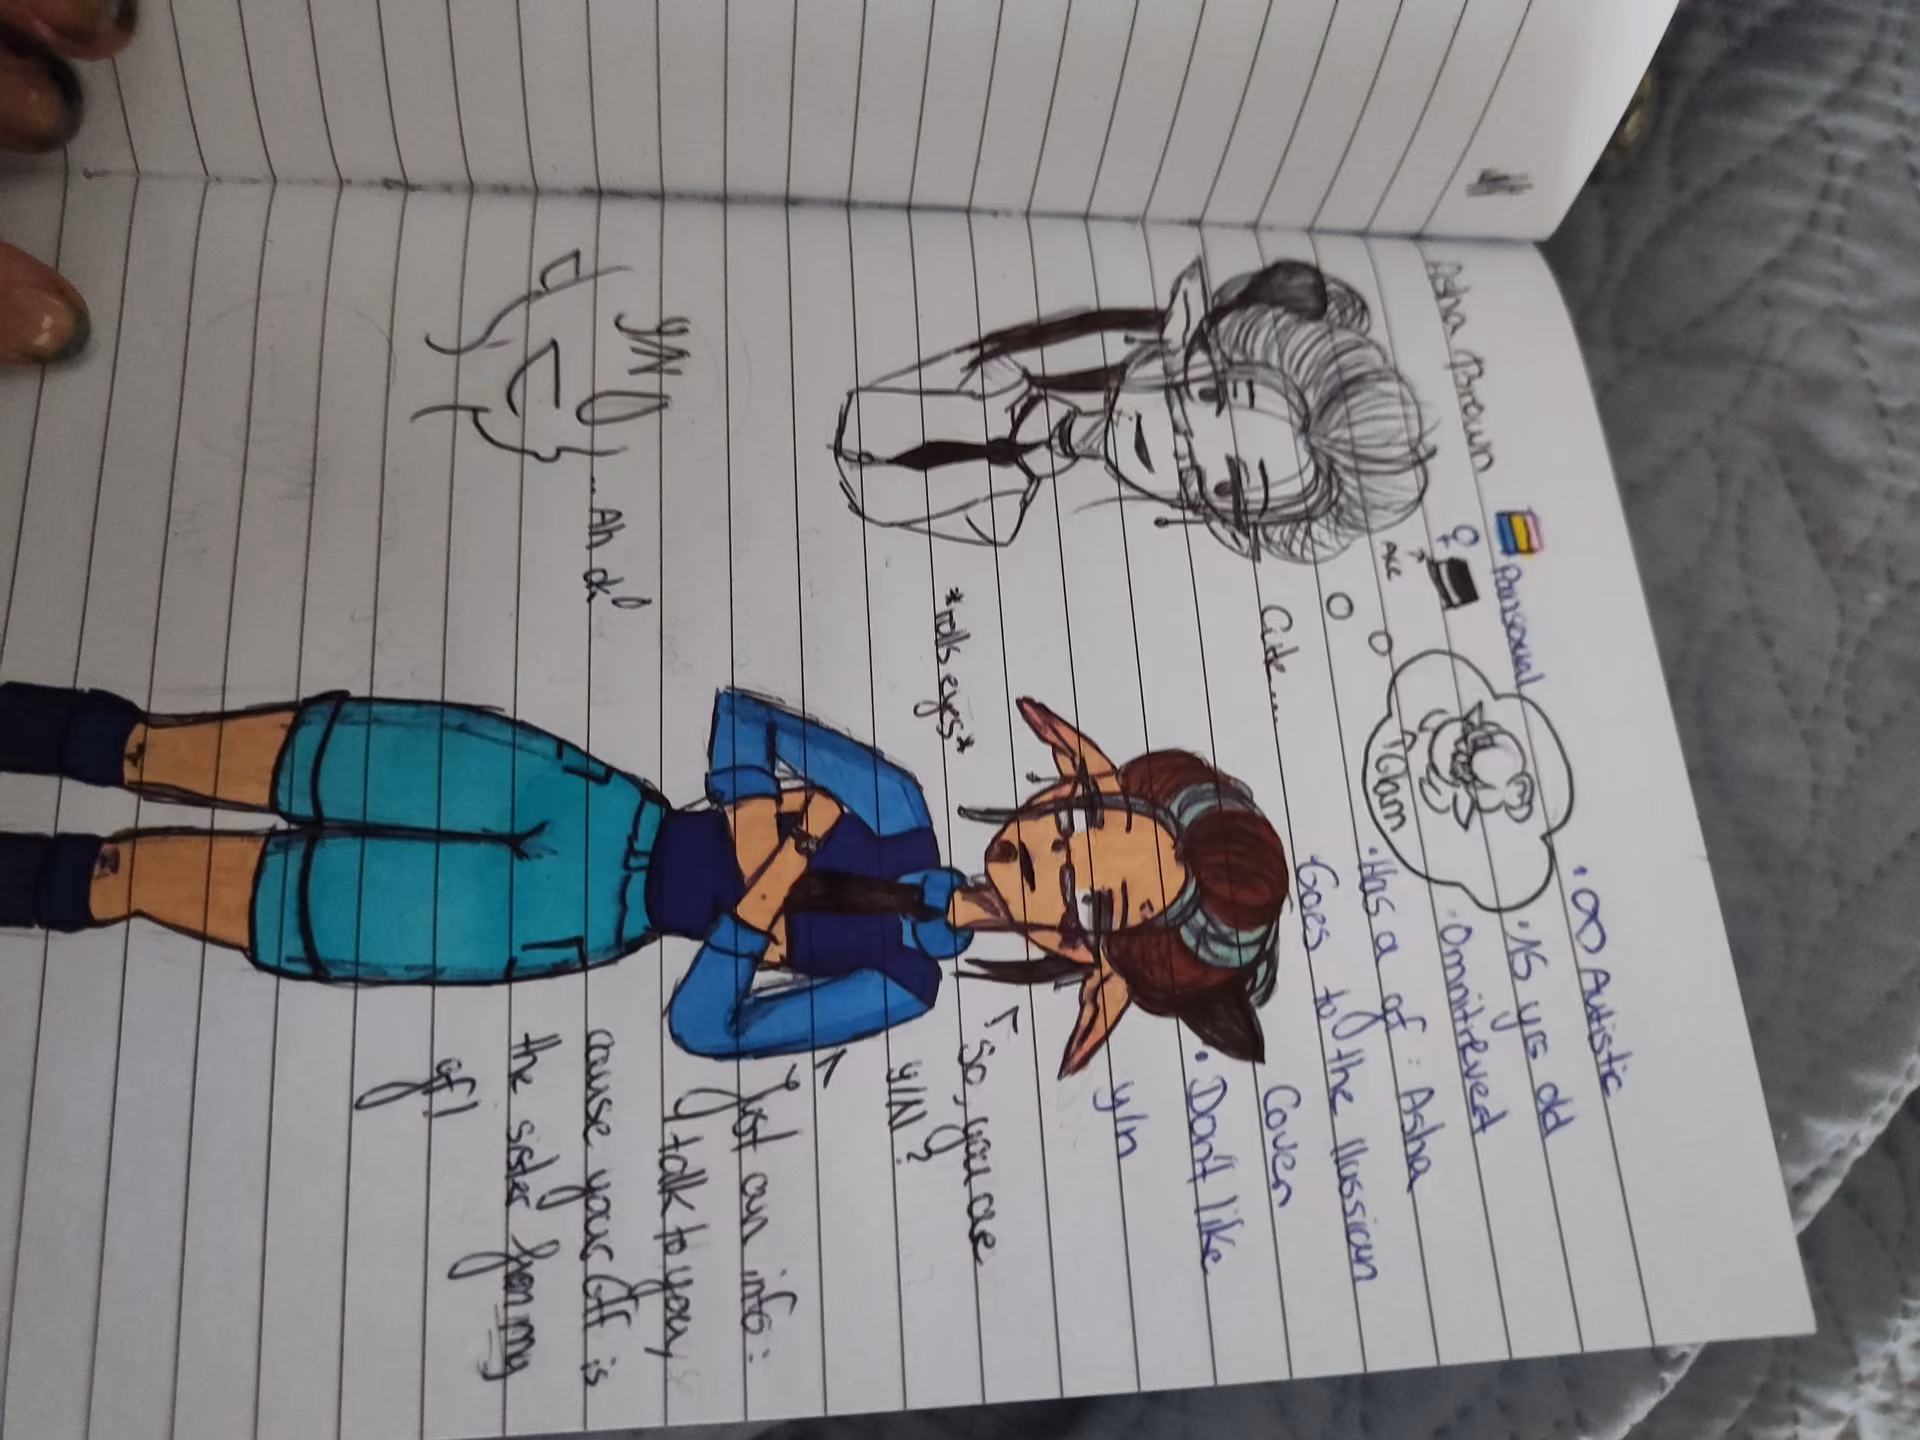 Asha Brown
Pansexual
Axe
Cham
• ∞ Autistic
• 15 yrs old
• Omnitreved
• Has a gf : Asha
• Goes to the Ilussion
Cover
• Don't like
y/n
Cute...
*rolls eyes*
So, you are
Y/N?
Just an info:
I talk to you
cause your Gff is
the sister from my
gf!
Y/N
...Ah ok